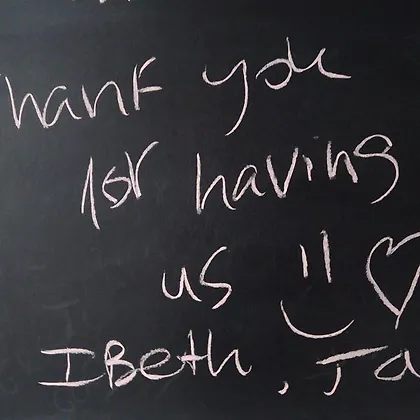 hank you
for having
us
IBeth, Ja